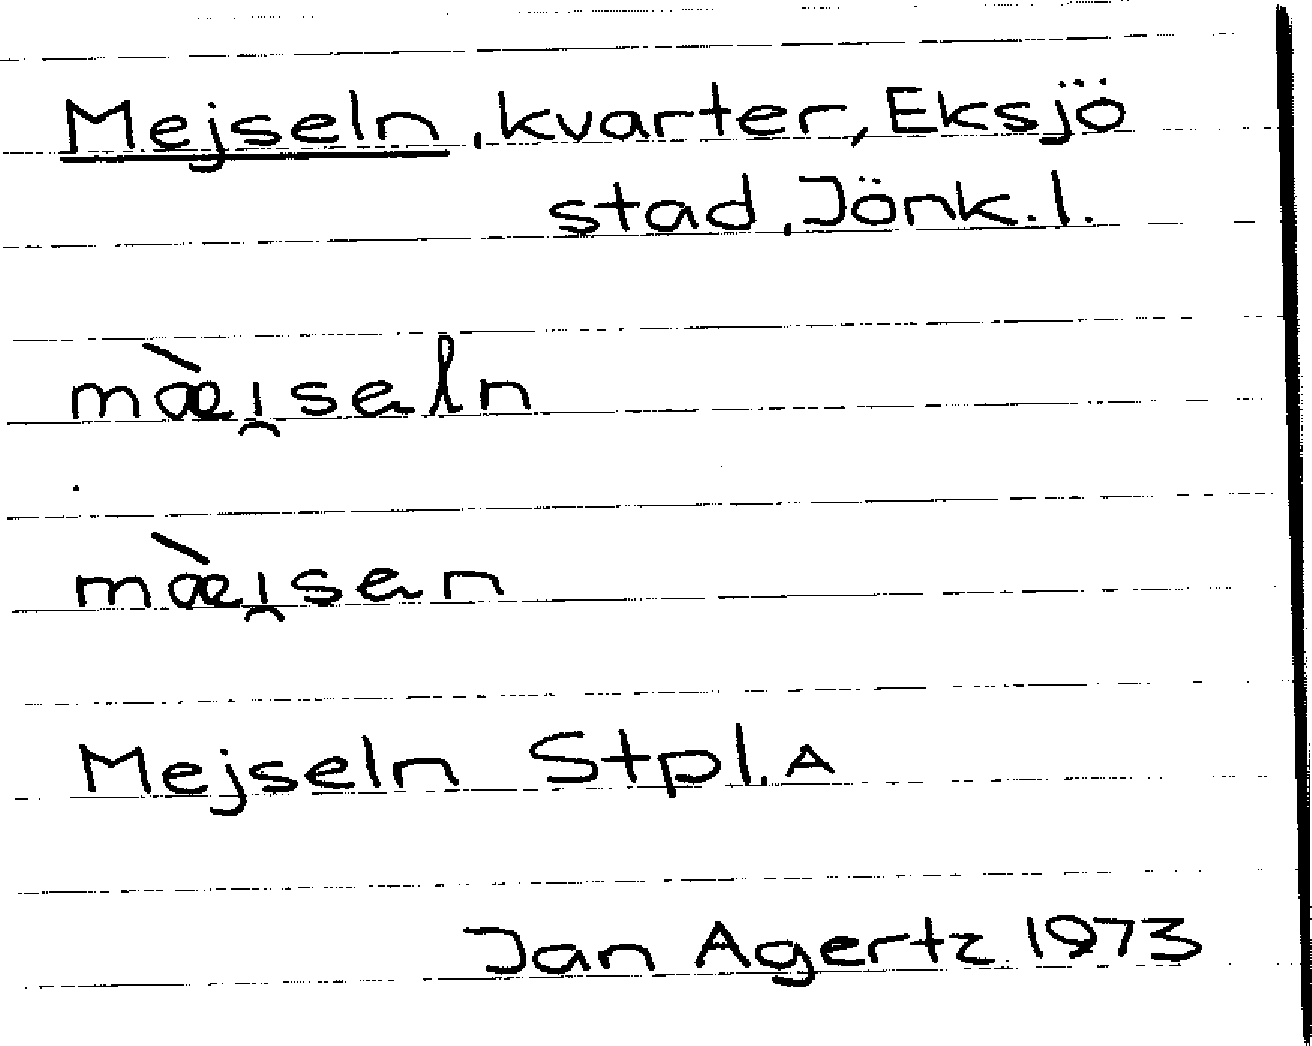 Mejseln, kvarter, Eksjö
stad, Jönk. l.
mæ̀i̯sealn
mæ̀i̯sean
Mejseln Stpl. A
Jan Agertz 1973